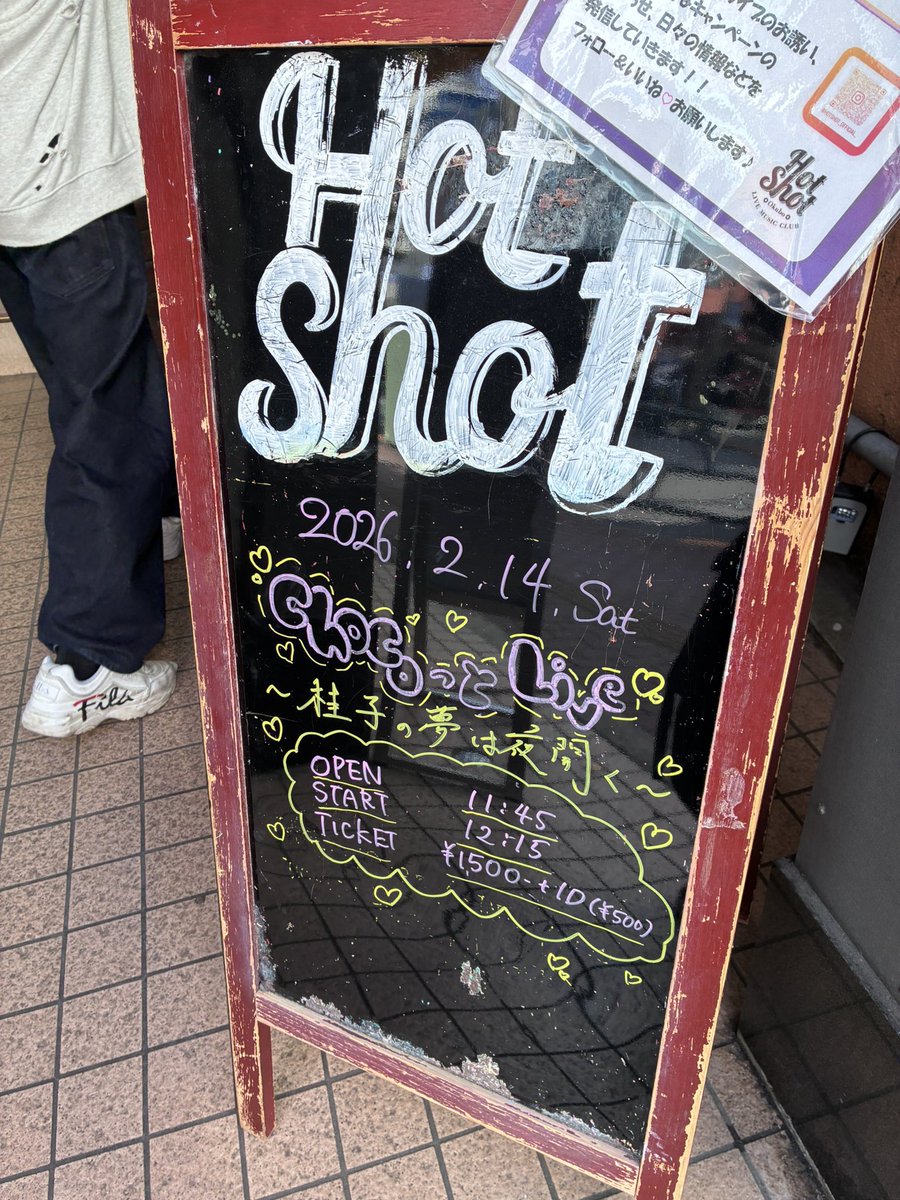 イブのお誘い、
キャンペーンの
せ、日々の情報などを
発信していきます！！
フォロー&いいね♡お願いします♪
Hot
Shot
Okubo
LIVE MUSIC CLUB
Hot
Shot
2026.2.14.Sat
CHOCoっと Live
～桂子の夢は夜開く～
OPEN 11:45
START 12:15
TICKET ¥1500-+1D(¥500)
Fila